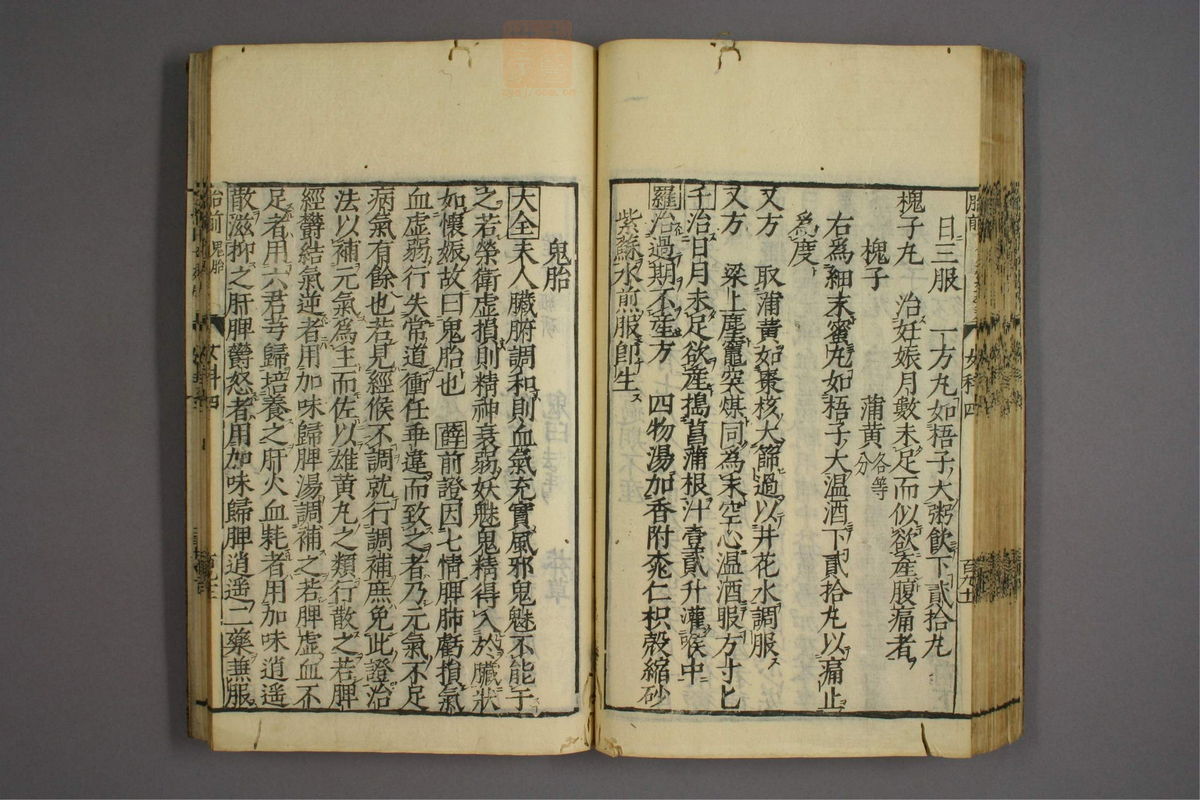 日三服　一方丸如梧子大粥飲下貳拾丸
槐子丸　治妊娠月數未足而似欲產腹痛者
槐子　蒲黃各等分
右爲細末蜜丸如梧子大温酒下貳拾丸以痛止
爲度
又方　取蒲黃如棗核大篩過以井花水調服
又方　梁上塵竈突煤同爲末空心温酒服方寸匕
千治日月未足欲產搗菖蒲根汁壹貳升灌喉中
羅治過期不產方　四物湯加香附桃仁枳殼縮砂
紫蘇水煎服卽生
鬼胎
大全夫人臟腑調和則血氣充實風邪鬼魅不能干
之若榮衛虛損則精神衰弱妖魅鬼精得入於臟狀
如懷娠故曰鬼胎也　薛前證因七情脾肺虧損氣
血虛弱行失常道衝任乖違而致之者乃元氣不足
病氣有餘也若見經候不調就行調補庶免此證治
法以補元氣爲主而佐以雄黃丸之類行散之若脾
經鬱結氣逆者用加味歸脾湯調補之若脾虛血不
足者用六君芎歸培養之肝火血耗者用加味逍遥
散滋抑之肝脾鬱怒者用加味歸脾逍遥二藥兼服
胎前　鬼胎　女科四